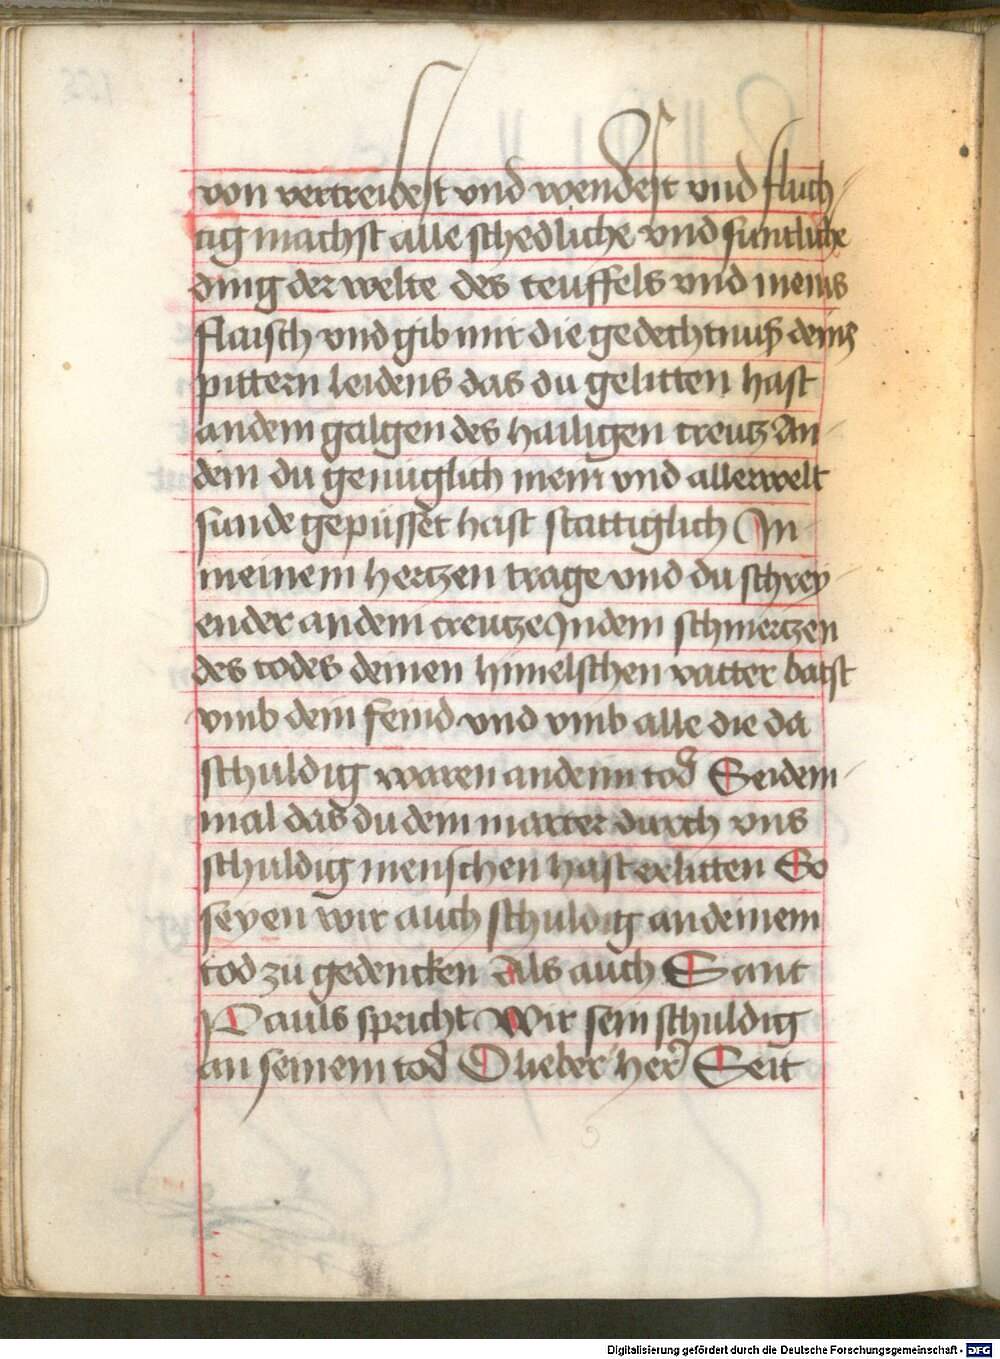 von vertreibest vnd wendest vnd fluch
tig machst alle schedliche vnd suntliche
ding der welte des teuffels vnd meins
flaisch vnd gib mir die gedechtnuß deins
pittern leidens das du gelitten hast
an dem galgen des hailigen creutz An
dem du genuglich mein vnd aller welt
sunde gepüsset hast stattiglich In
meinem hertzen trage vnd du schrey
ender an dem creutze In dem schmertzen
des todes deinen himelschen vatter batst
vmb dein feind vnd vmb alle die da
schuldig waren an deim tod Seidem
mal das du dein marter durch vns
schuldig menschen hast erlitten So
seyen wir auch schuldig an deinem
tod zu gedencken Als auch Sant
Pauls spricht Wir sein schuldig
an seinem tod O lieber her Seit
Digitalisierung gefördert durch die Deutsche Forschungsgemeinschaft - DFG